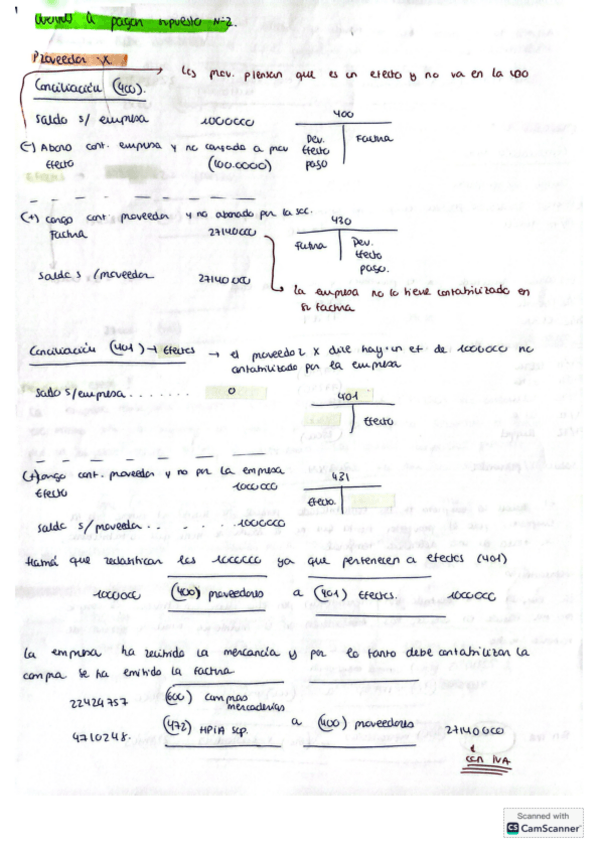 a pagar supuesto Nº2.
Proveedor X
los prov. piensan que es un efecto y no va en la 400
Conciliación (400).
Saldo s/ empresa 1000000
400
(-) Abono cont. empresa y no cargado a prov
Efecto (100.0000)
Dev. Efecto paso
Factura
(+) Cargo cont. proveedor y no abonado por la soc.
Factura 27140000
430
Factura
Dev. Efecto paso.
Saldo s/proveedor 27140000
la empresa no lo tiene contabilizado en su factura
Conciliación (401) → Efectos → el proveedor X dice hay un ef. de 1000000 no
contabilizado por la empresa
Saldo s/empresa . . . . . . . 0
401
Efecto
(+) Cargo cont. proveedor y no por la empresa
Efecto 1000000
431
Efecto.
Saldo s/proveedor . . . . . . 1000000
Habrá que reclasificar los 1000000 ya que pertenecen a efectos (401)
1000000 (400) proveedores a (401) Efectos. 1000000
La empresa ha recibido la mercancía y por lo tanto debe contabilizar la
compra se ha emitido la factura
22424757 (600) compras mercaderías
4710248. (472) HPIA sop. a (400) proveedores 27140000
con IVA
Scanned with
CS CamScanner